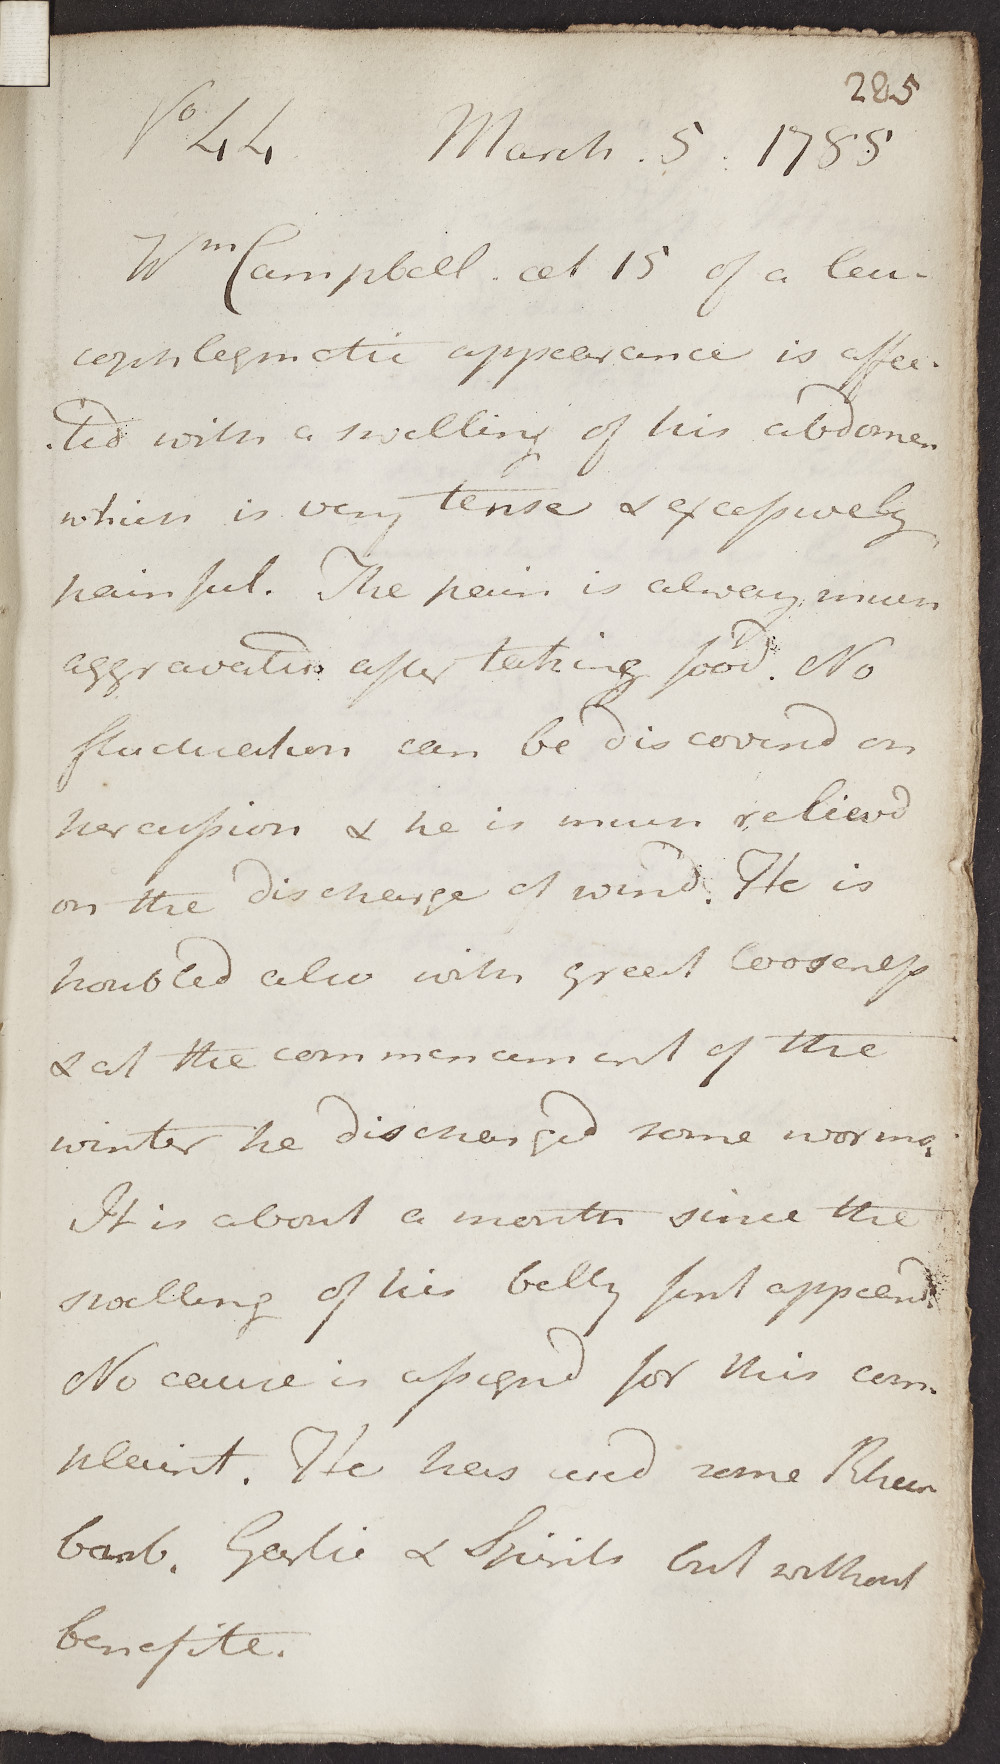 285
No 44 March . 5 . 1785
Wm Campbell . aet 15 of a leu-
cophlegmatic appearance is affec-
-ted with a swelling of his abdomen
which is very tense & excessively
painful. The pain is always much
aggravated after taking food. No
fluctuation can be discoverd on
percussion & he is much relievd
on the discharge of wind. He is
troubled also with great looseness
& at the commencement of the
winter he discharged some worms.
It is about a month since the
swelling of his belly first appeard.
No cause is assignd for this com-
plaint. He has used some Rheu-
barb. Garlic & Spirits but without
benefite.